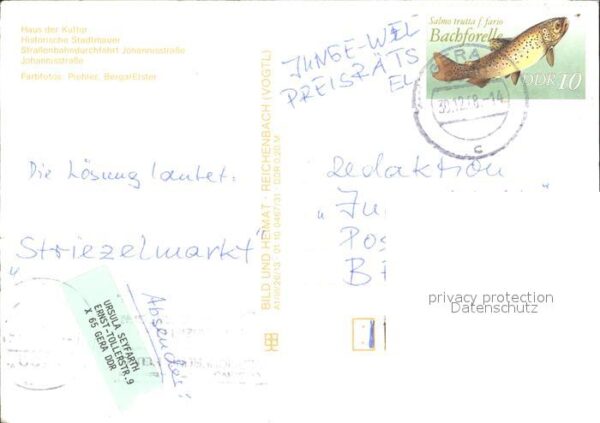 Haus der Kultur
Historische Stadtmauer
Straßenbahndurchfahrt Johannisstraße
Johannisstraße
Farbfotos: Piehler, Berga/Elster
Die Lösung lautet:
„Striezelmarkt"
Absender:
URSULA SEYFARTH
ERNST-TOLLERSTR.9
X 65 GERA DDR
BILD UND HEIMAT · REICHENBACH (VOGTL)
JUNGE-WEL
PREISRATS
EL
Salmo trutta f. fario
Bachforelle
DDR 10
GERA
30.12.
-14
c
Redaktion
„Ju
Pos
B
privacy protection
Datenschutz